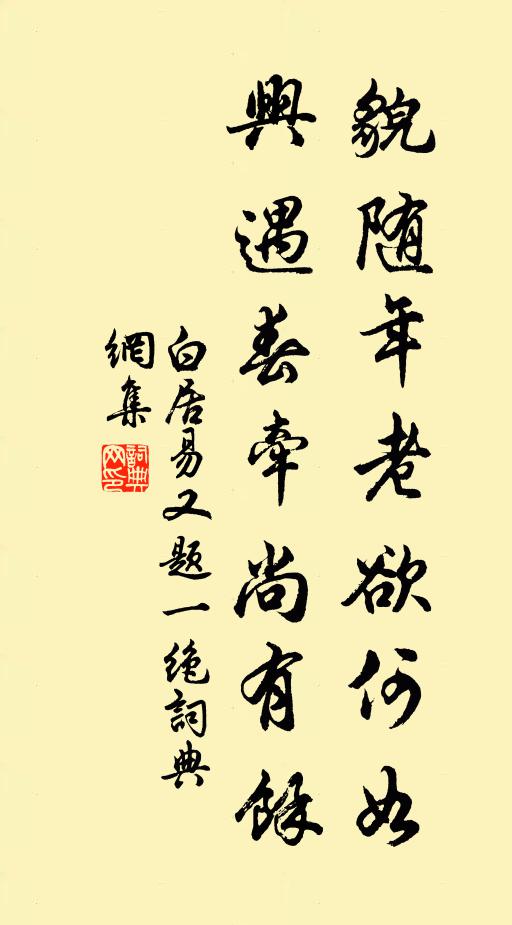 貌随年老欲何如
興遇春牽尚有餘
白居易又题一绝詞典
網集
詞典
网印